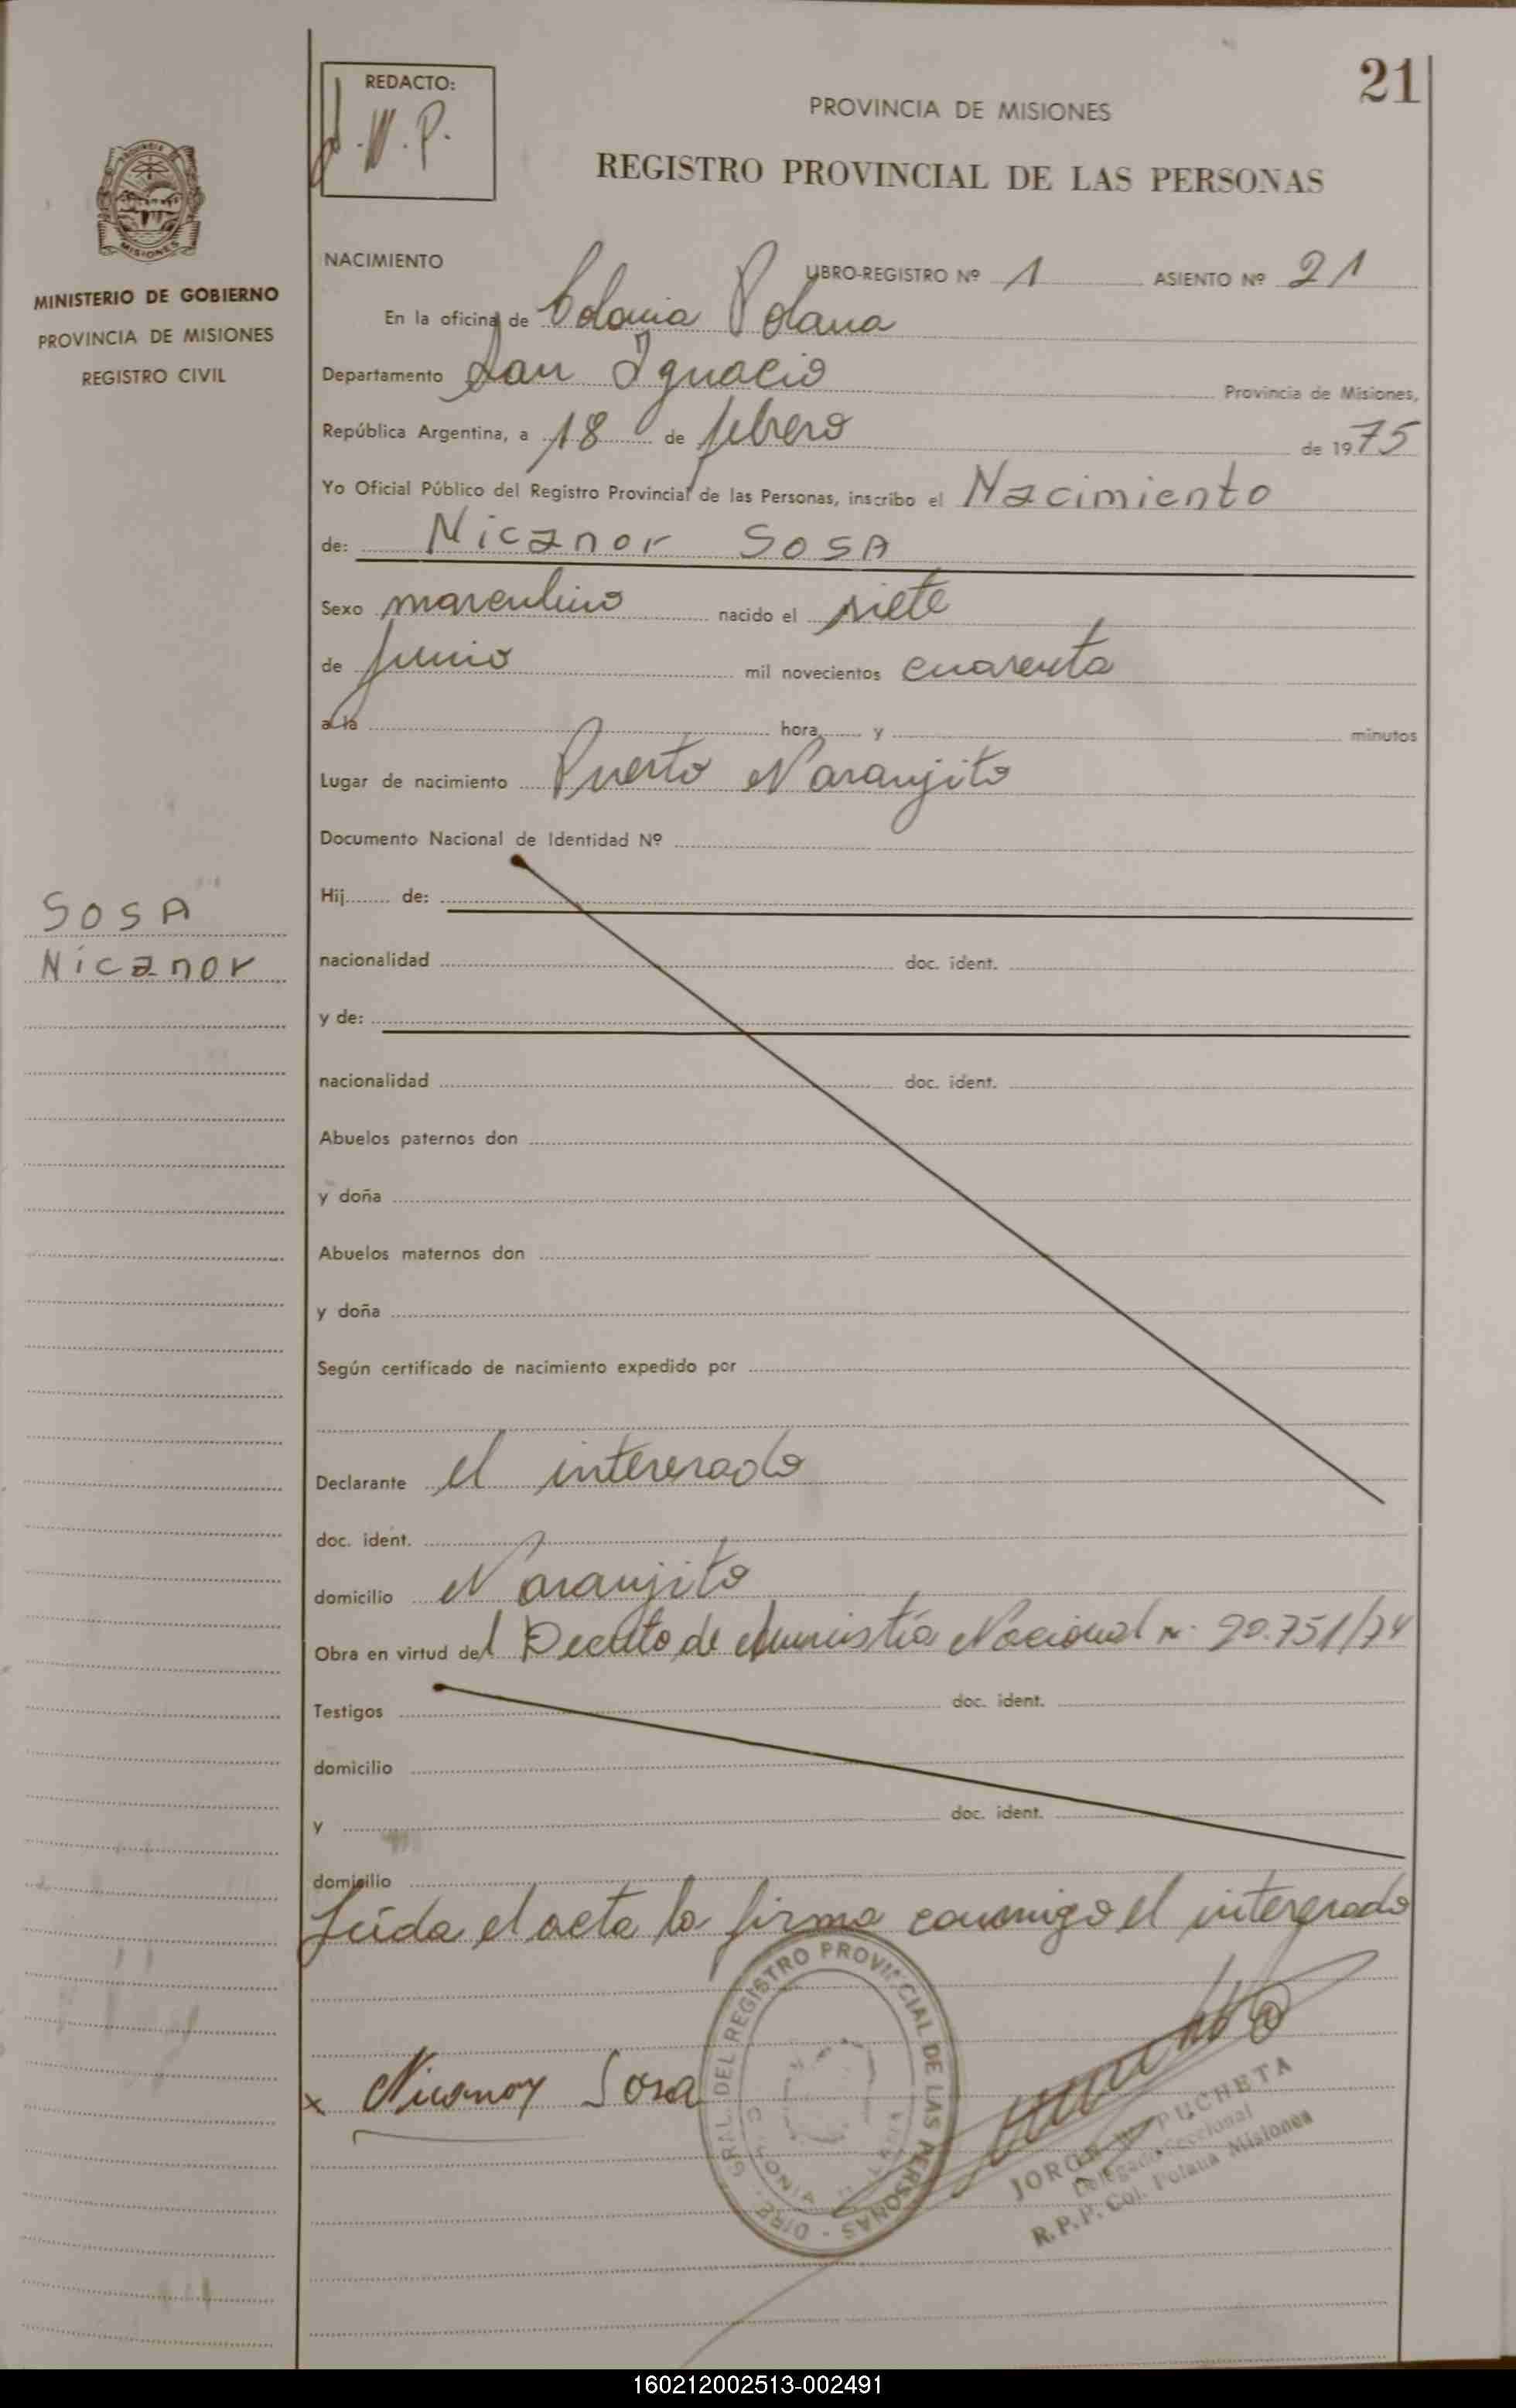 21
REDACTO:
J.W.P.
PROVINCIA DE MISIONES
REGISTRO PROVINCIAL DE LAS PERSONAS
MISIONES
MINISTERIO DE GOBIERNO
PROVINCIA DE MISIONES
REGISTRO CIVIL
NACIMIENTO LIBRO-REGISTRO Nº 1 ASIENTO Nº 21
En la oficina de Colonia Polana
Departamento San Ignacio Provincia de Misiones,
República Argentina, a 18 de febrero de 1975
Yo Oficial Público del Registro Provincial de las Personas, inscribo el Nacimiento
de: Nicanor SOSA
Sexo masculino nacido el siete
de junio mil novecientos cuarenta
a la hora y minutos
Lugar de nacimiento Puerto Naranjito
Documento Nacional de Identidad Nº
SOSA
Nicanor
Hij de:
nacionalidad doc. ident.
y de:
nacionalidad doc. ident.
Abuelos paternos don
y doña
Abuelos maternos don
y doña
Según certificado de nacimiento expedido por
Declarante el interesado
doc. ident.
domicilio Naranjito
Obra en virtud del Decreto de Amnistía Nacional n. 20.751/74
Testigos doc. ident.
domicilio
y doc. ident.
domicilio
Leída el acta la firma conmigo el interesado
x Nicanor Sosa
DIRE. GRAL. DEL REGISTRO PROVINCIAL DE LAS PERSONAS
JORGE W. PUCHETA
Delegado Seccional
R.P.P. Col. Polana Misiones
160212002513-002491